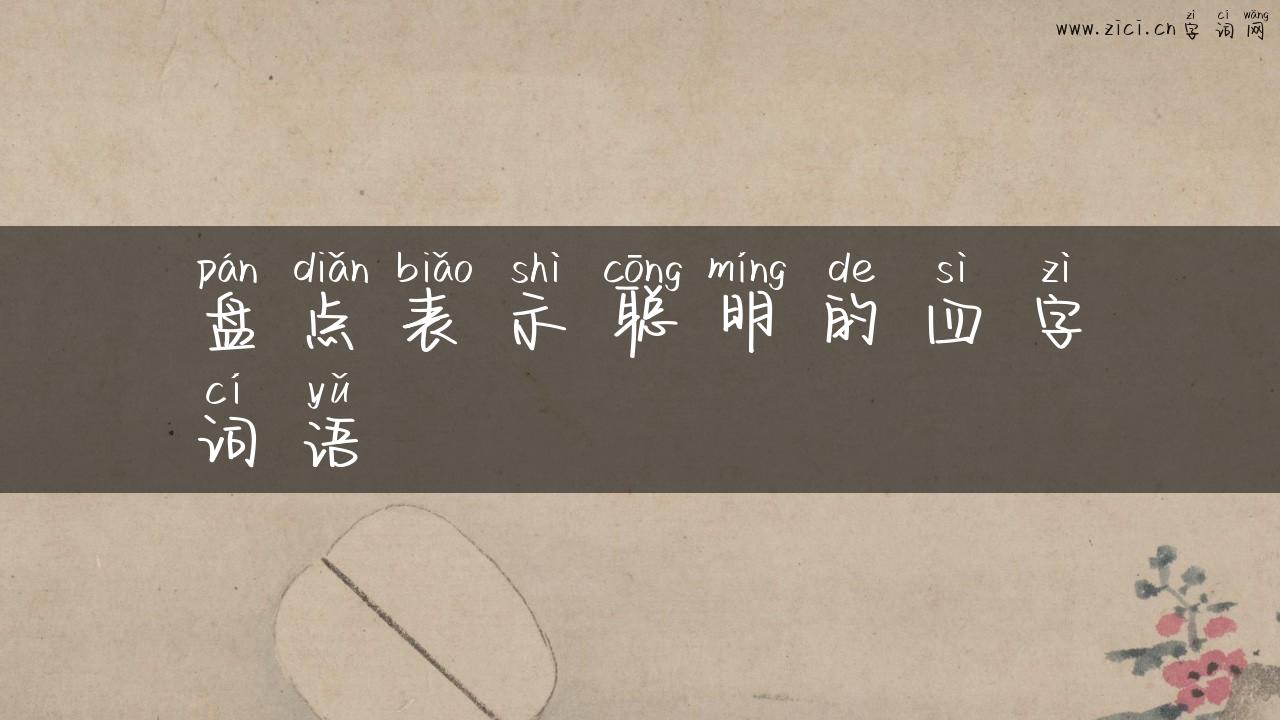 zì cí wǎng
www.zici.cn 字 词 网
pán diǎn biǎo shì cōng míng de sì zì
盘 点 表 示 聪 明 的 四 字
cí yǔ
词 语